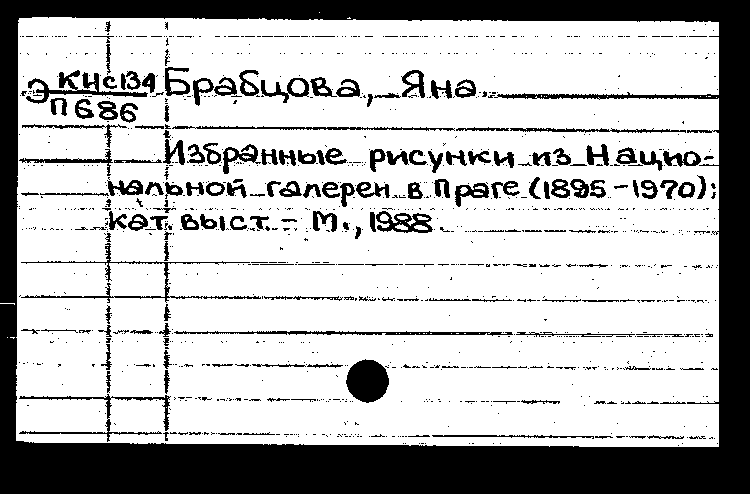 Э КНс134 Брабцова, Яна.
П686
Избранные рисунки из Нацио-
нальной галереи в Праге (1895-1970):
кат. выст. - М., 1988.